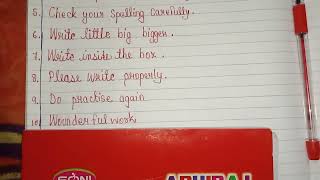 5. Check your spelling carefully.
6. Write little big bigger.
7. Write inside the box.
8. Please write properly.
9. Do practise again
10. Wounderful work